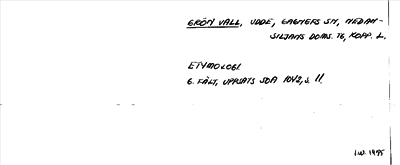 GRÖN VALL, UDDE, GAGNEFS SN, NEDAN-
SILJANS DOMS. 76, KOPP. L.
ETYMOLOGI
G. FÄLT, UPPSATS SOA 1042, s. 11.
I.W. 1975